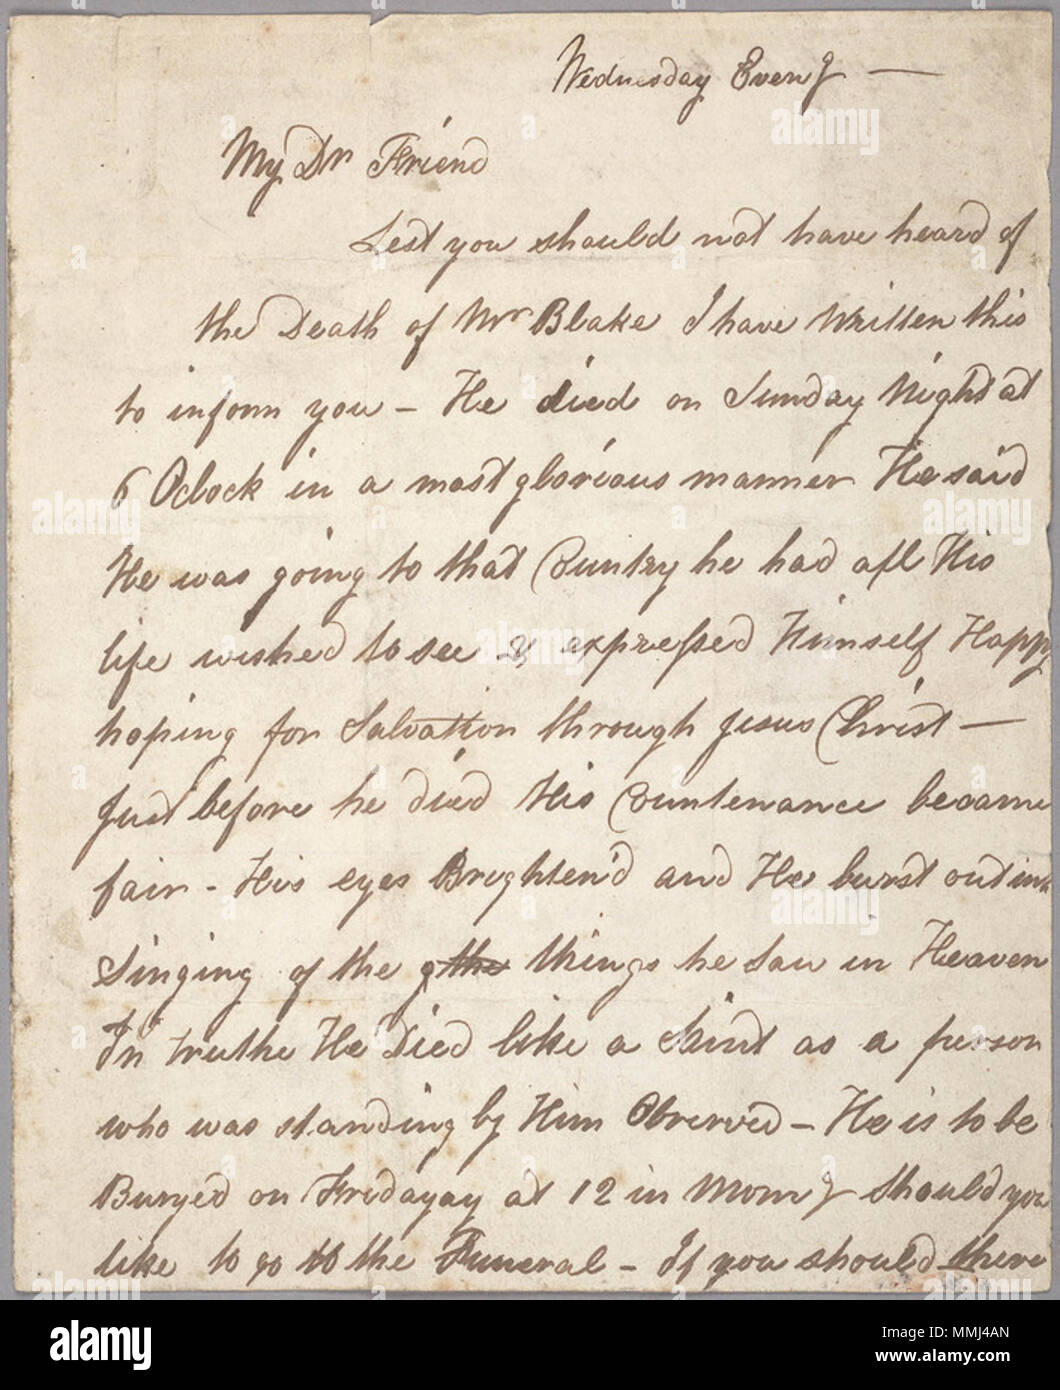 Wednesday Eveng —
My Dr Friend
Lest you should not have heard of
the Death of Mr Blake I have Written this
to inform you – He died on Sunday Night at
6 Oclock in a most glorious manner He said
He was going to that Country he had all His
life wished to see & expressed Himself Happy
hoping for Salvation through Jesus Christ —
Just before he died His Countenance became
fair - His eyes Brighten'd and He burst out in
Singing of the things he Saw in Heaven
In truth He Died like a Saint as a person
who was standing by Him Observed – He is to be
Buryed on Fridayay at 12 in Morng Should you
like to go to the Funeral – If you should there
alamy
Image ID: MMJ4AN
www.alamy.com